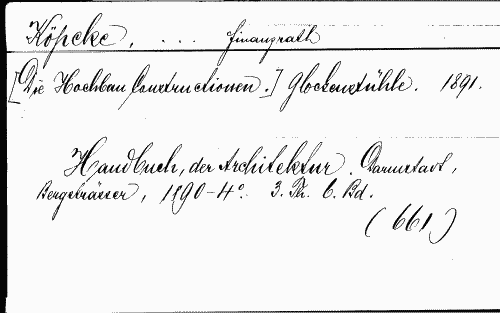 Köpcke, ... Finanzrath
[Die Hochbau Constructionen.] Glockenstühle. 1891.
Handbuch, der Architektur. Darmstadt,
Bergsträsser, 1890-4°. 3. Th. 6. Bd.
(661)